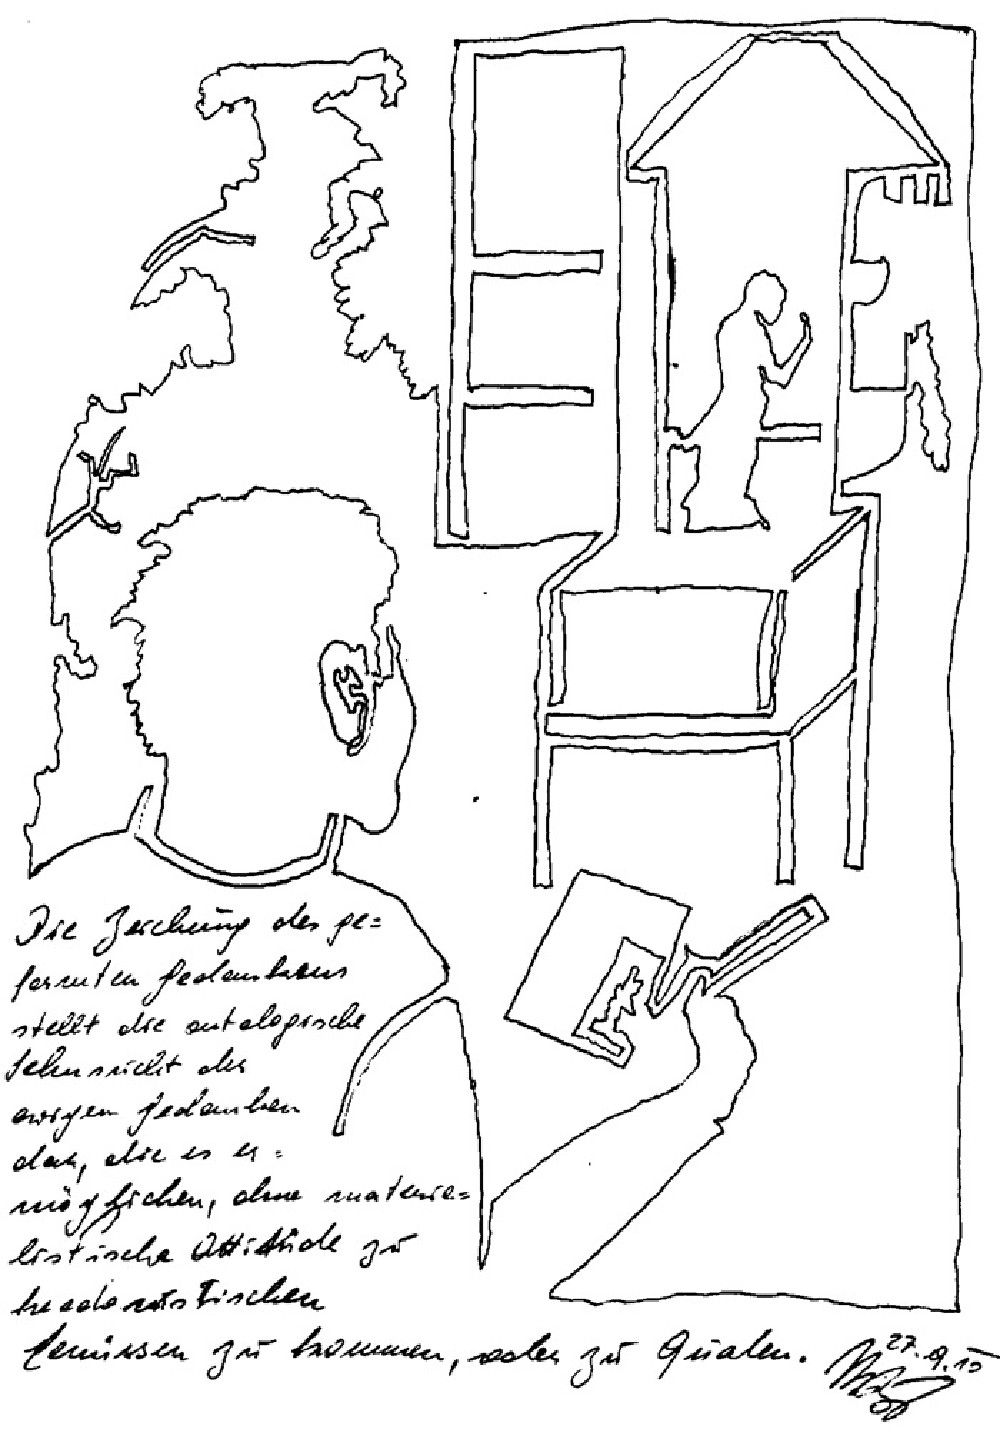 Die Zeichnung des ge=
lernten Gedankens
stellt die ontologische
Sehnsucht der
ewigen Gedanken
dar, die es er=
möglichen, ohne materia=
listische Attitüde zu
hedonistischen
Genüssen zu kommen, oder zu Qualen.
27.9.15